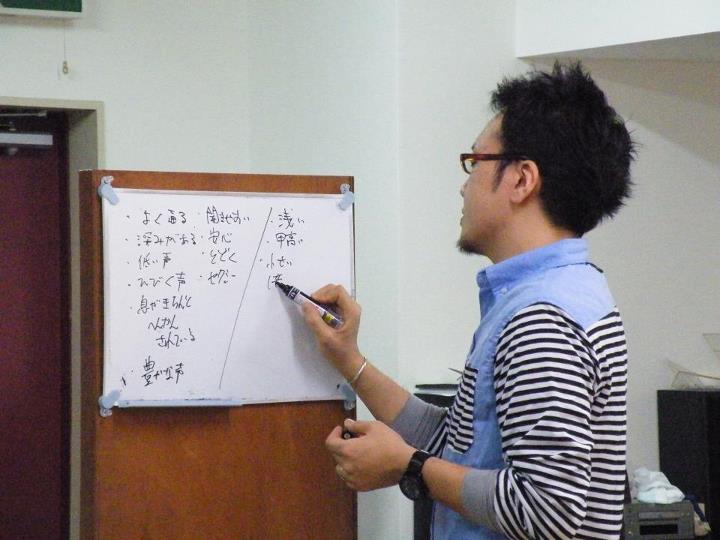 ・よく通る
・深みがある
・低い声
・ひびく声
・息がきちんと
へんかん
されている
・豊かな声
・聞きやすい
・安心
・とどく
・セクシー
・浅い
・甲高い
・小さい